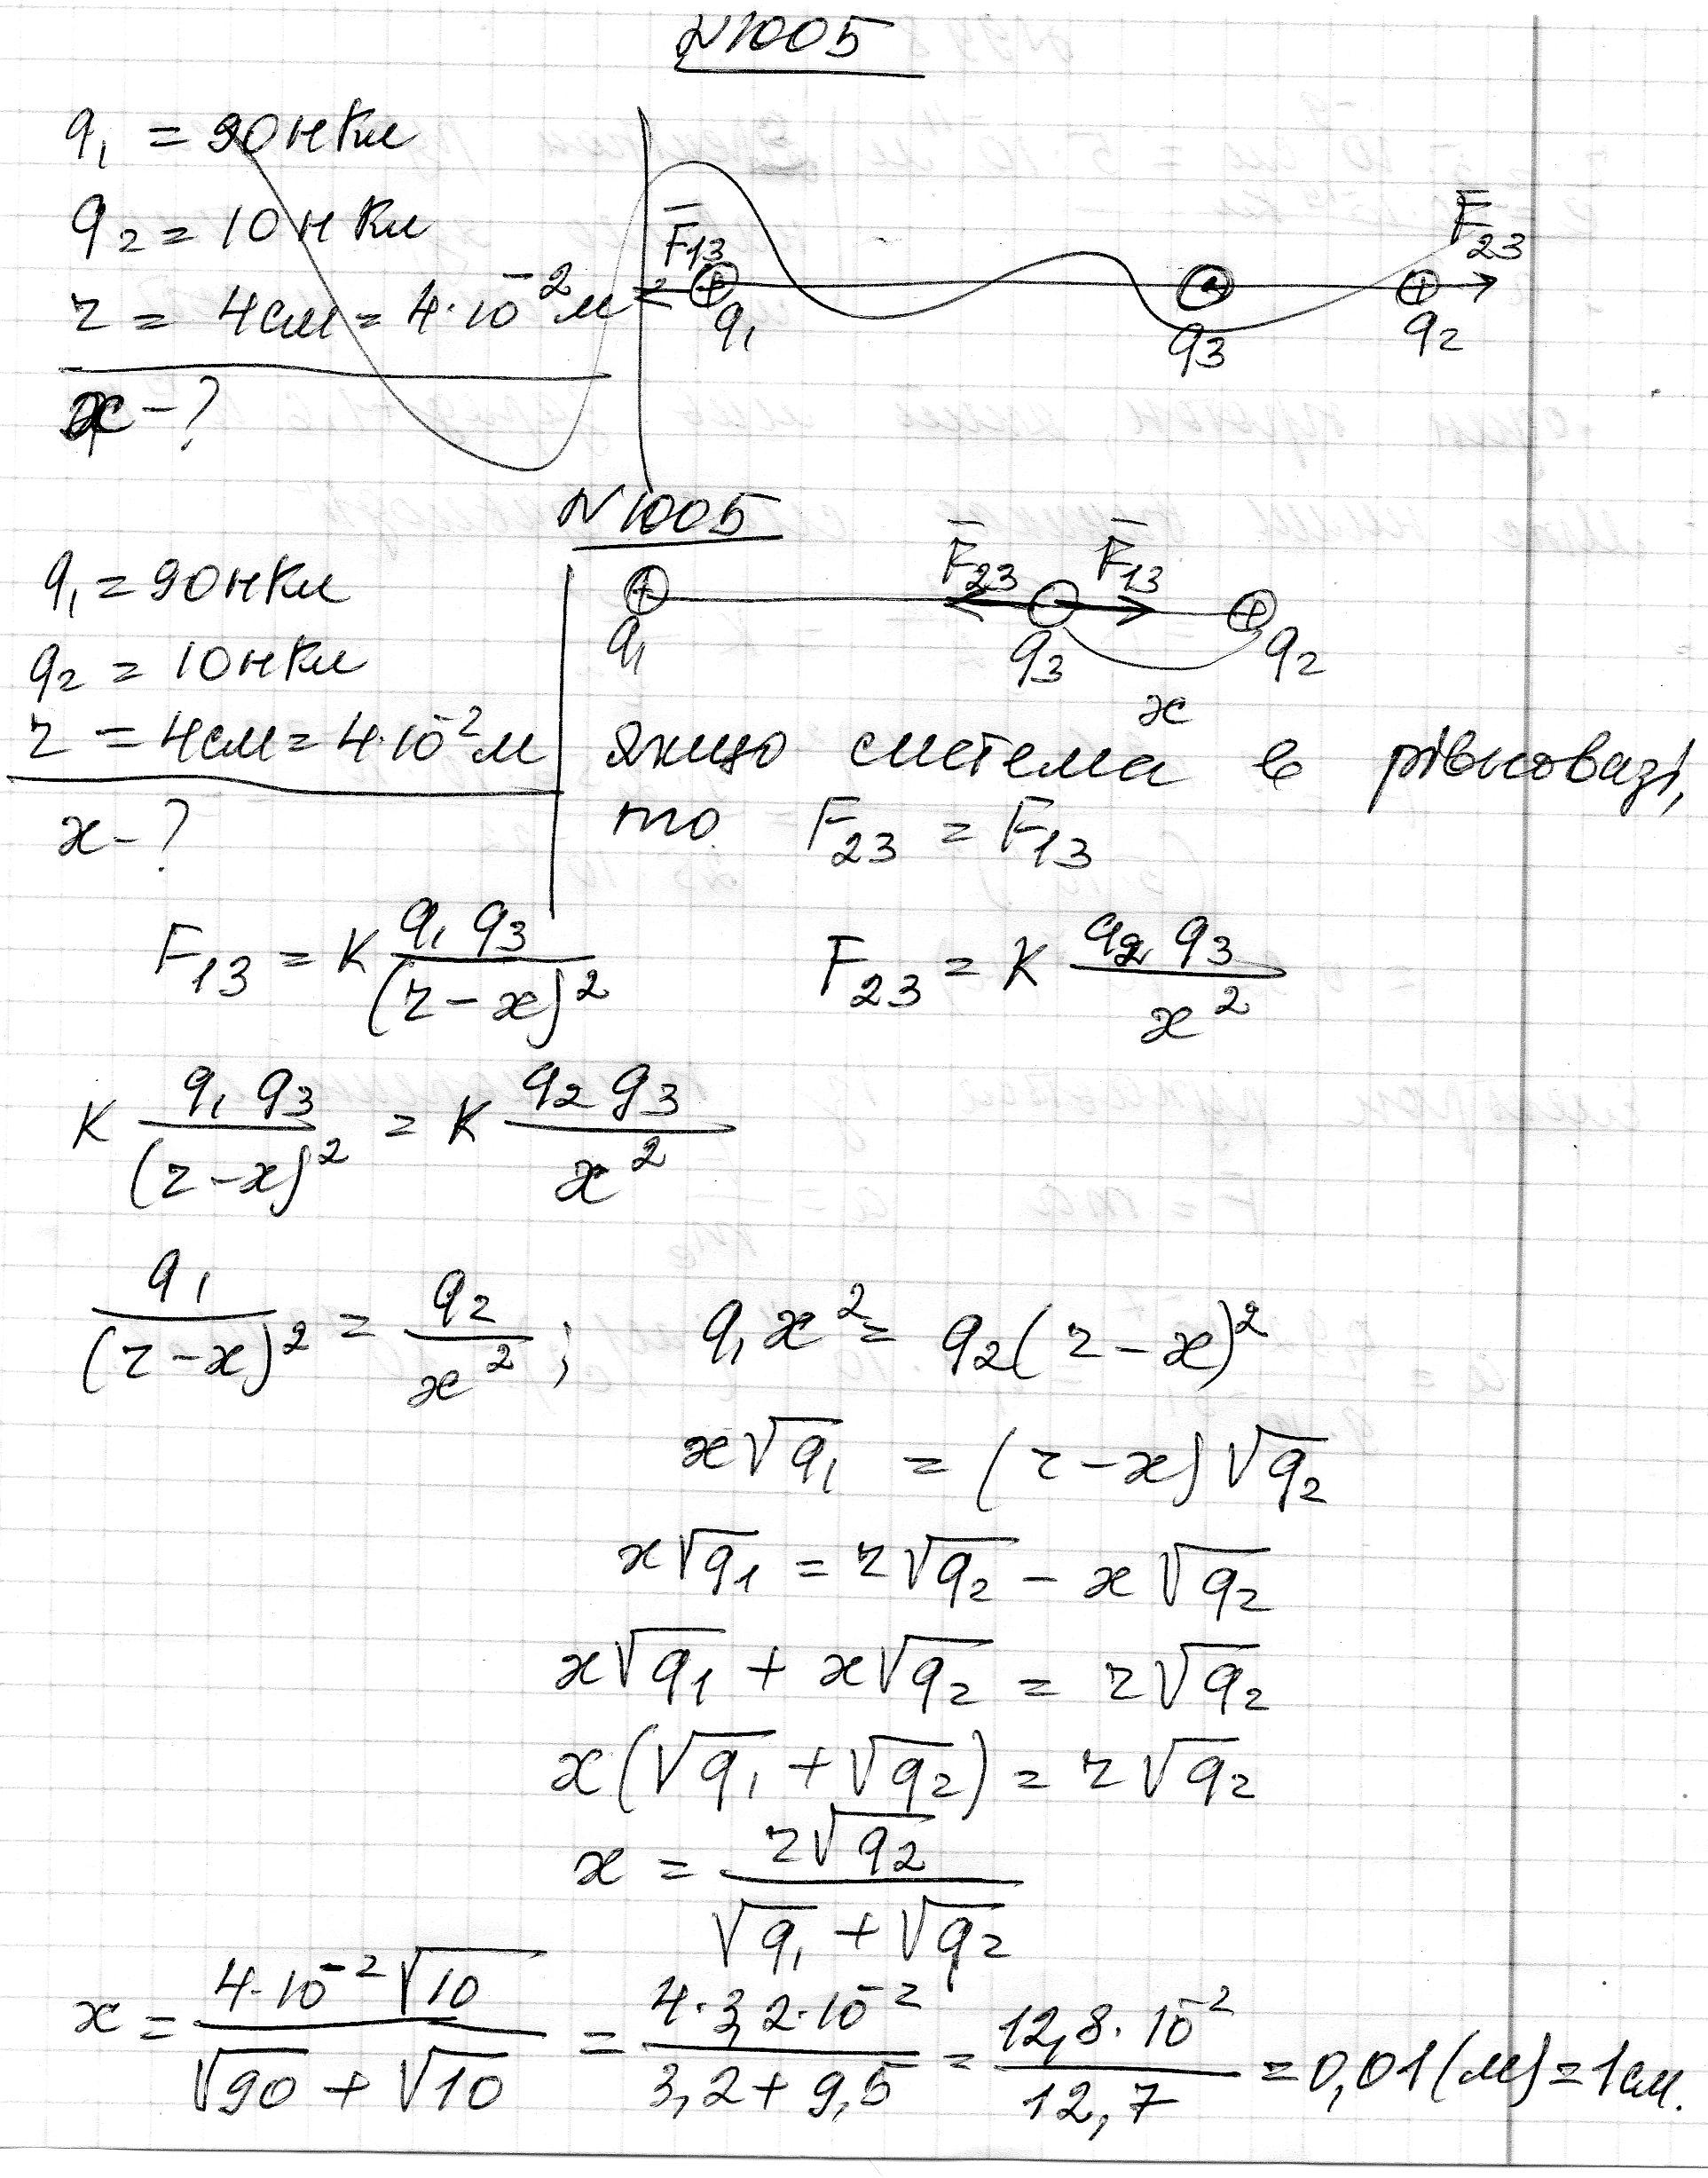 N1005
q₁ = 90нКл
q₂ = 10нКл
r = 4см = 4·10⁻²м
x - ?
F̅₁₃
F̅₂₃
q₁
q₃
q₂
N1005
q₁ = 90нКл
q₂ = 10нКл
r = 4см = 4·10⁻²м
x - ?
F̅₂₃ F̅₁₃
q₁ q₃ q₂
x
якщо система в рівновазі,
то F₂₃ = F₁₃
F₁₃ = K q₁ q₃ / (r - x)² F₂₃ = K q₂ q₃ / x²
K q₁ q₃ / (r - x)² = K q₂ q₃ / x²
q₁ / (r - x)² = q₂ / x² ; q₁x² = q₂(r - x)²
x√q₁ = (r - x)√q₂
x√q₁ = r√q₂ - x√q₂
x√q₁ + x√q₂ = r√q₂
x(√q₁ + √q₂) = r√q₂
x = r√q₂ / √q₁ + √q₂
x = 4·10⁻²√10 / √90 + √10 = 4·3,2·10⁻² / 3,2 + 9,5 = 12,8·10⁻² / 12,7 = 0,01(м) = 1см.